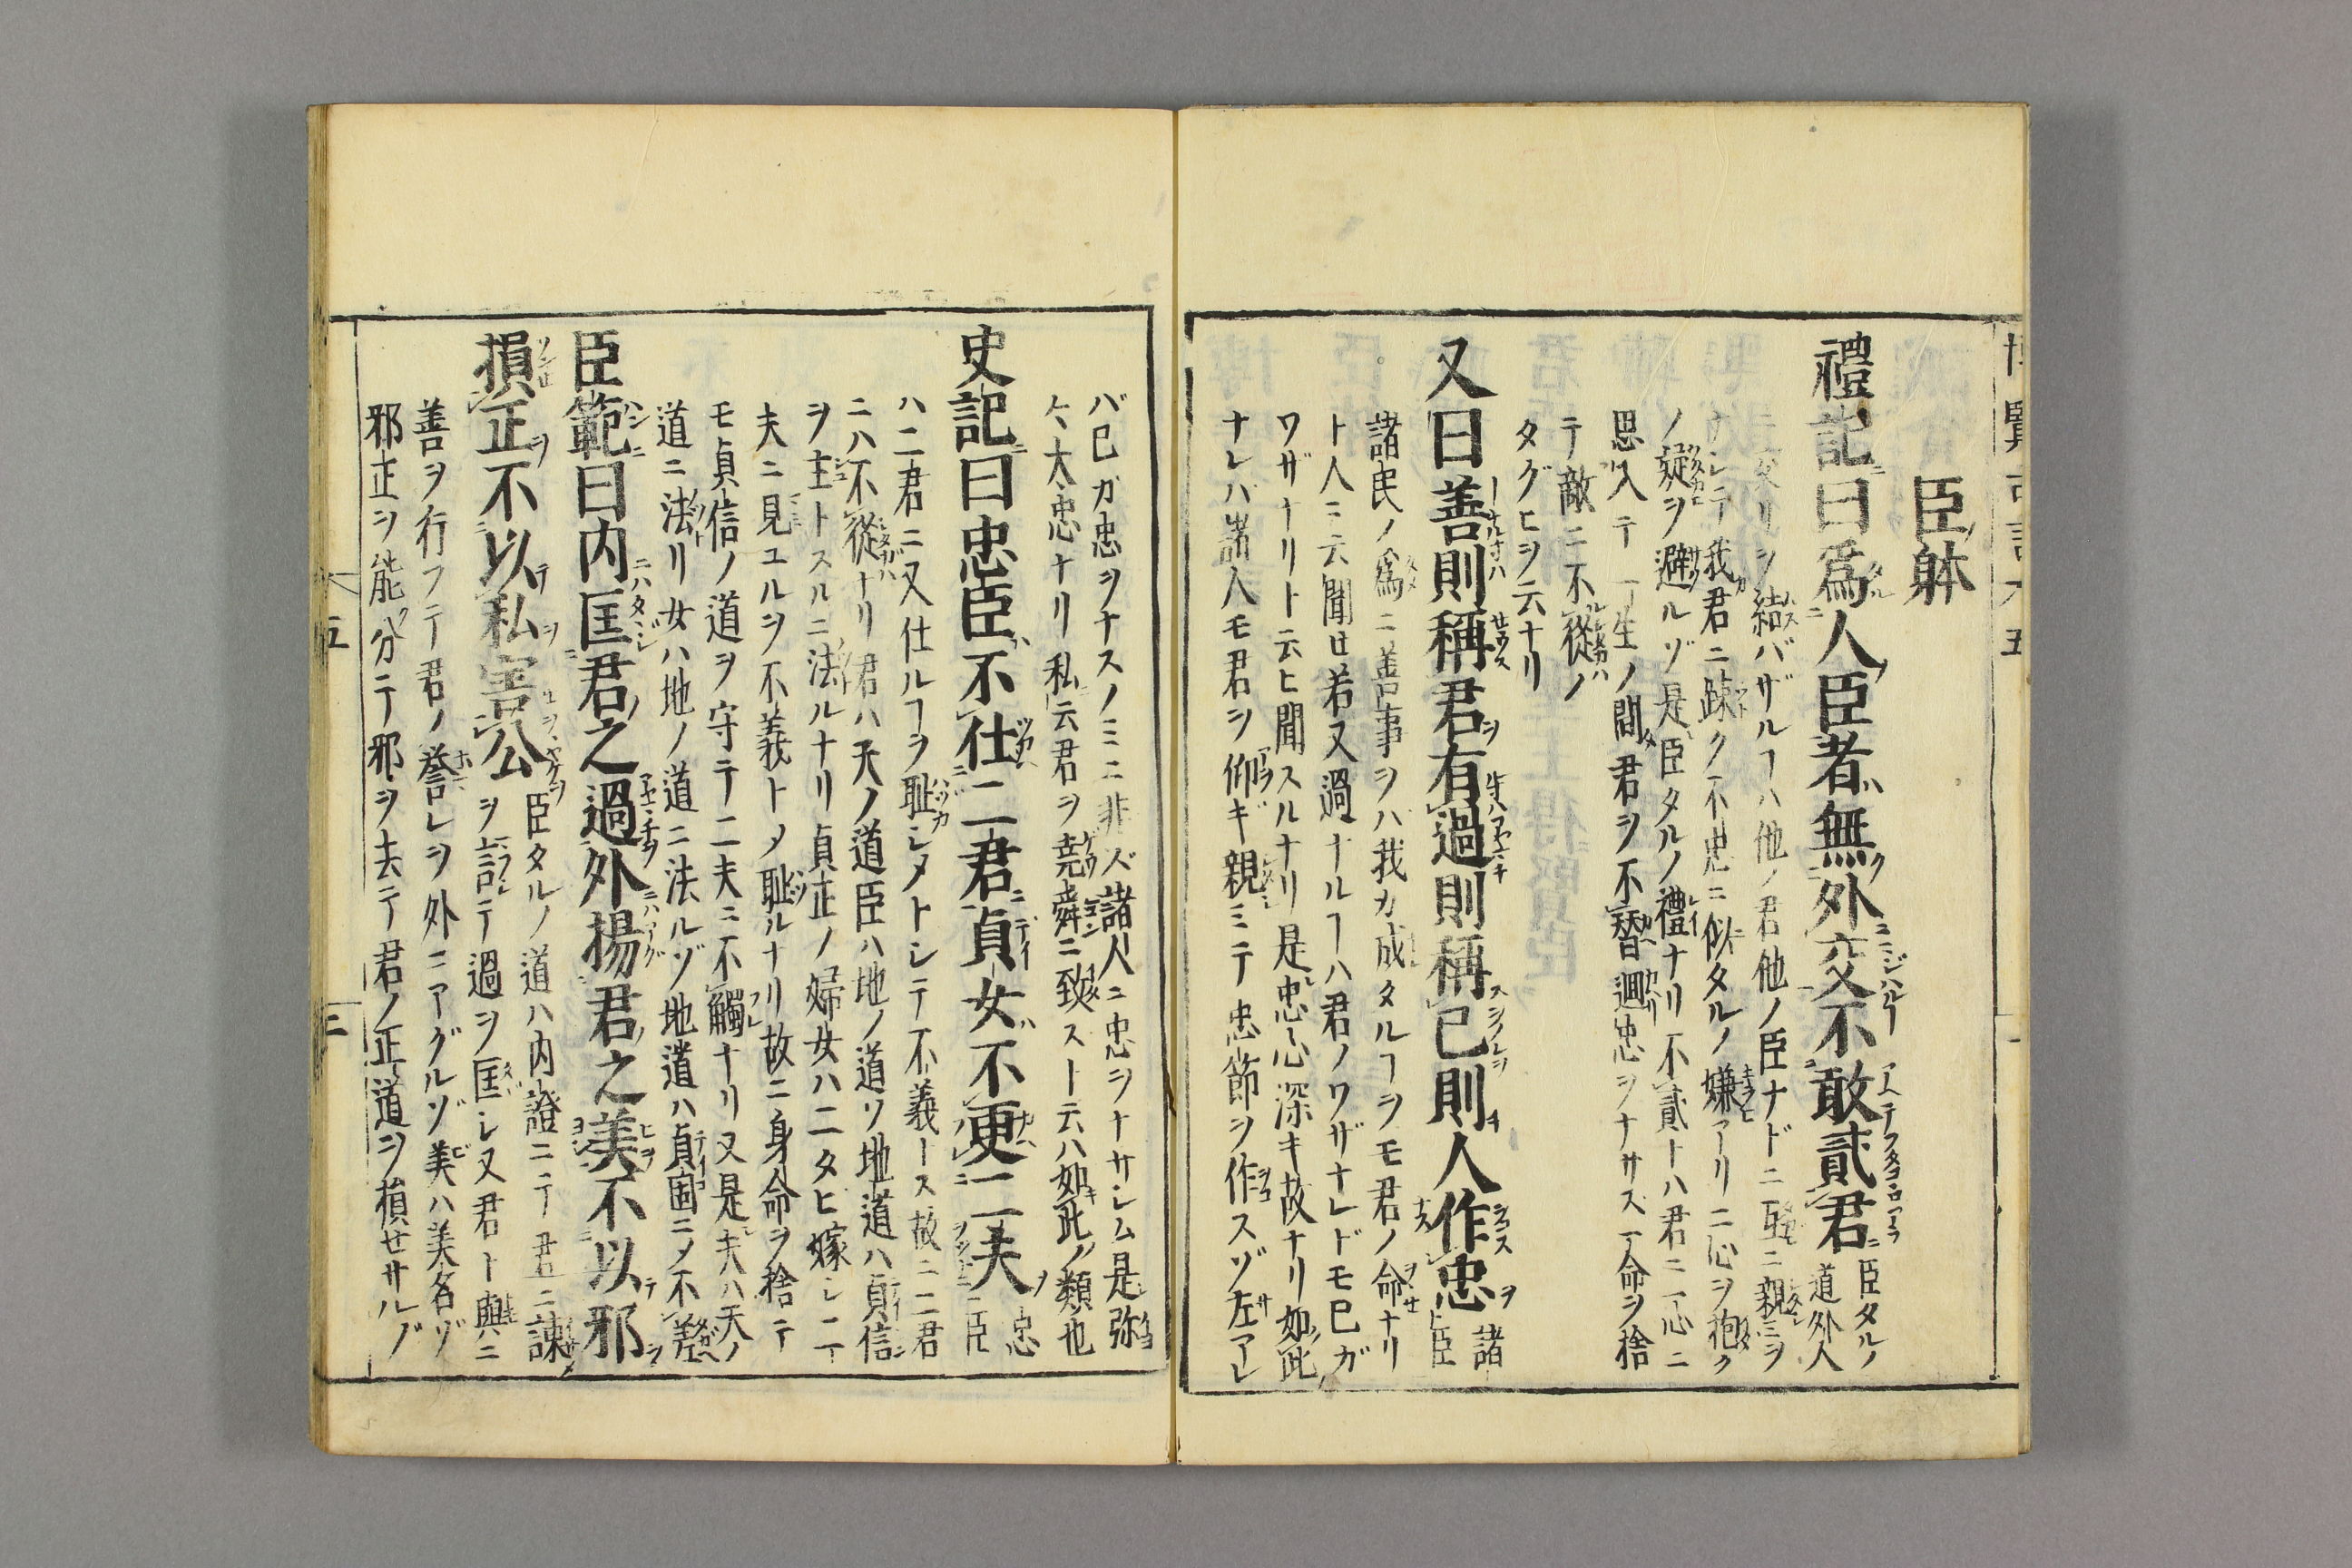 臣ノ躰
禮記曰爲人臣者無外交不敢貳君 臣タルノ道外人
ニ交リヲ結バザルヿハ他ノ君他ノ臣ナドニ互ニ親ミヲ
ナシテ我君ニ踈ク不忠ニ似タルノ嫌アリ二心ヲ抱ク
ノ疑ヲ避ルゾ是臣タルノ禮ナリ不貳トハ君ニ一心ニ
思入テ一生ノ間君ヲ不替廻忠ヲナサス一命ヲ捨
テ敵ニ不從ノ
タグヒヲ云ナリ
又曰善則稱君有過則稱己則人作忠 諸臣
諸民ノ爲ニ善事ヲハ我カ成タルヿヲモ君ノ命ナリ
ト人ニ云聞せ若又過ナルヿハ君ノワザナレドモ已ガ
ワザナリト云ヒ聞スルナリ是忠心深キ故ナリ如此
ナレハ諸人モ君ヲ仰ギ親ミテ忠節ヲ作スゾ左アレ
バ已ガ忠ヲナスノミニ非ズ諸人ニ忠ヲナサシム是弥
大忠ナリ私云君ヲ堯舜ニ致ストハ如此ノ類也
史記曰忠臣不仕二君貞女不更二夫 忠臣
ハ二君ニ又仕ルヿヲ恥シメトシテ不義トス故ニ二君
ニハ不從ナリ君ハ天ノ道臣ハ地ノ道ソ地道ハ貞信
ヲ主トスルニ法ルナリ貞正ノ婦女ハ二タヒ嫁シ二
夫ニ見ユルヲ不義トメ恥ルナリ故ニ身命ヲ捨テ
モ貞信ノ道ヲ守テ二夫ニ不觸ナリ又是夫ハ天ノ
道ニ法リ女ハ地ノ道ニ法ルゾ地道ハ貞固ニメ不差
臣範曰内匡君之過外揚君之美不以邪
損正不以私害公 臣タルノ道ハ内證ニテ君ニ諫
ヲ言テ過ヲ匡シ又君ト與ニ
善ヲ行フテ君ノ誉レヲ外ニアグルゾ美ハ美名ゾ
邪正ヲ能分テ邪ヲ去テ君ノ正道ヲ損セサルゾ
五
三